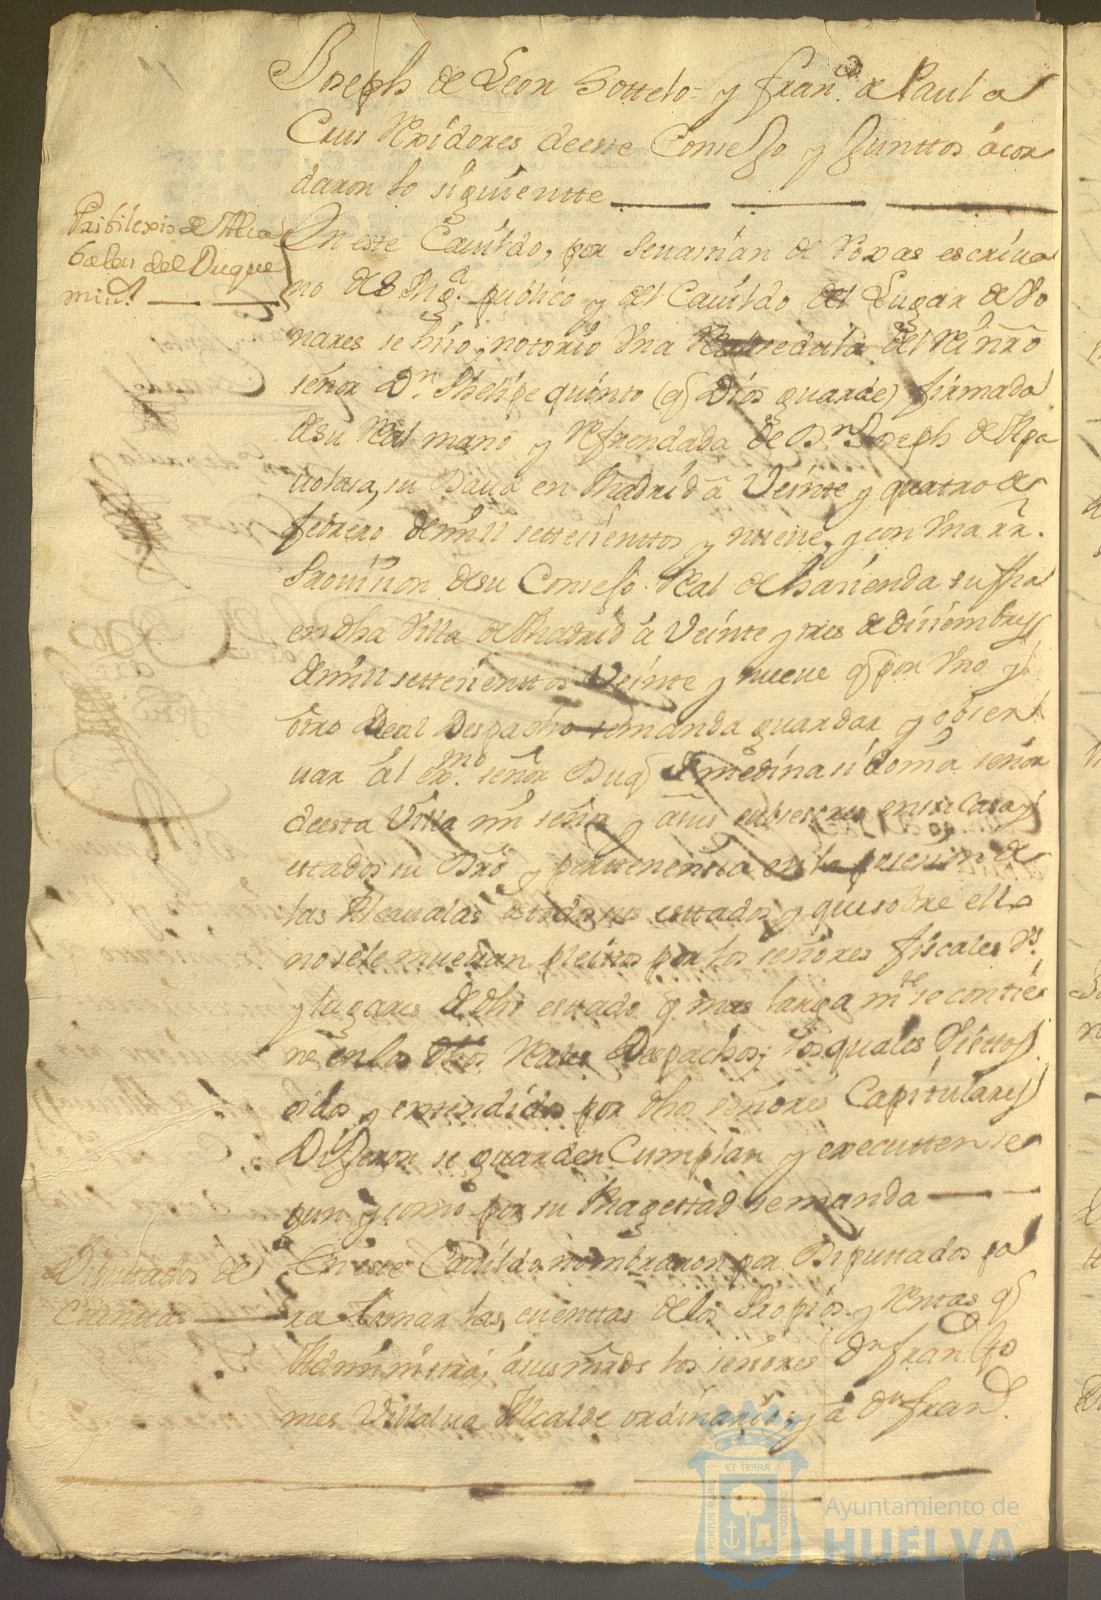 Joseph de Leon Sotteto = y fran.co de Paula
Cruz Rexidores de este Consejo y Junttos acor
daron lo siguientte
Pribilexio de Alca
balas del Duque
mi s.r
En este Cavildo, por Sevastian de Roxas escriva
no de S Mg.d publico y del Cavildo del Lugar de Bo
nares se hizo notorio Vna Real cedula del Rei nr̃o
señor Dn. Phelipe quinto (q̃ Dios guarde) firmada
de su Real mano y Refrendada de Dn. Joseph de
su Data en Madrid a Veinte y quatro de
febrero de mill settezienttos y nueve, y con Vna
Provission de su Consejo Real de hazienda su fha
en dha Villa de Madrid a Veinte y tres de diziembre
de mill settezienttos Veinte y nueve q̃ por Vno y
otro Real Despacho se manda guardar y obser
var al ex.mo señor Duq̃ de medina sidonia señor
de esta Villa mi señor y a sus subsesores en su Casa y
estados su Dr̃o y perttenensia en la posesion de
las Alcavalas de todos sus esttados y que sobre ello
no se le muevan pleittos por los señores fiscales
y lugares de dho estado q̃ mas larga m.te se contie
ne en los dhos Reales Despachos; los quales Visttos
oidos y entendidos por dhos señores Capitulares
Dijeron se guarden Cumplan y executten se
gun y como por su Magestad se manda
Diputtados de
Cuenttas
En este Cavildo nombraron por Diputtados pa
ra tomar las cuenttas de los Propios y Rentas q̃
Administra, a sus mrds los señores Dn fran.co Go
mes Villalva Alcalde ordinario; y a Dn fran.co
PORTUS MARIS
ET TERRÆ
CUSTODIA
Ayuntamiento de
HUELVA